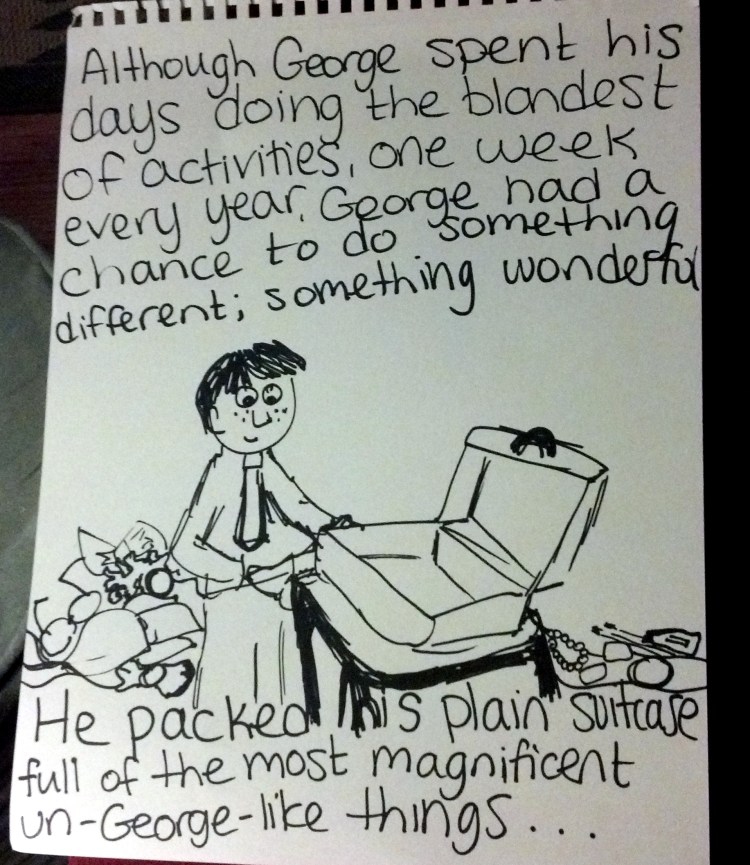 Although George spent his
days doing the blandest
of activities, one week
every year, George had a
chance to do something
different; something wonderful
He packed his plain suitcase
full of the most magnificent
un-George-like things...